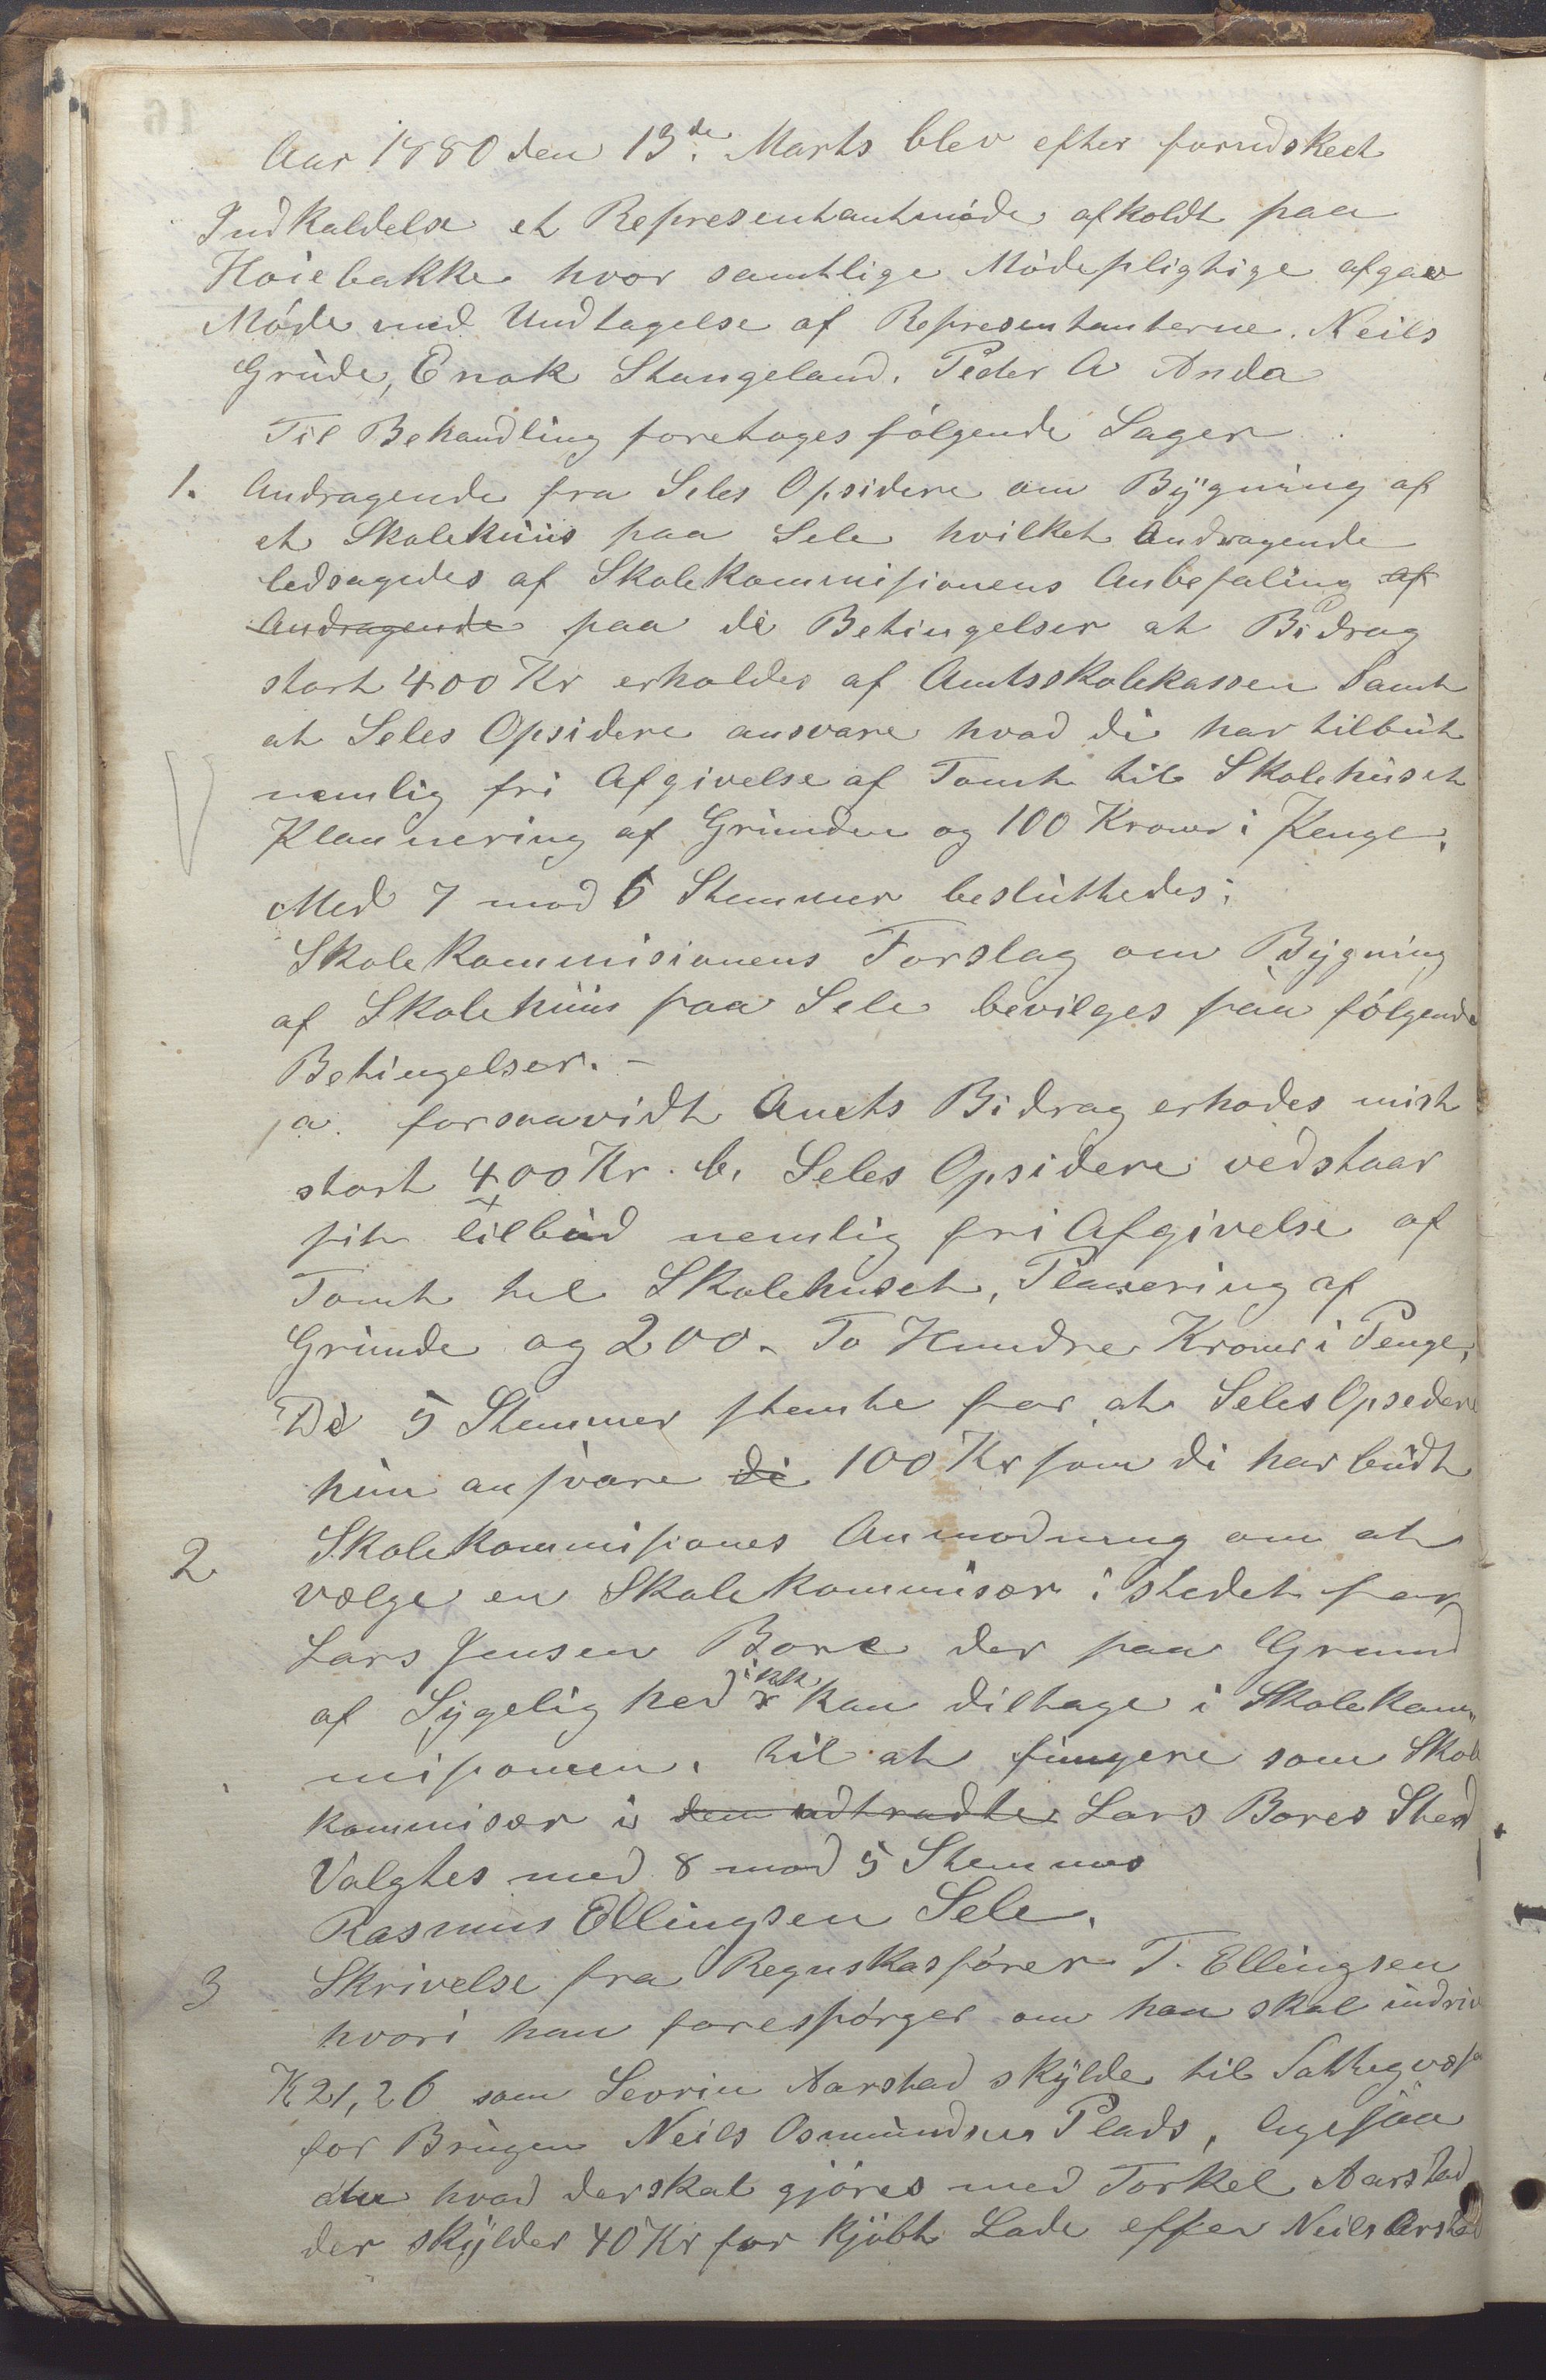 Aar 1880 den 13de. Marts blev efter forudskeet
Indkaldelse et Representantmøde afholdt paa
Høiebakke hvor samtlige Mødepligtige afgav
Møde med Undtagelse af Representanterne. Neils
Grude, Enok Stangeland. Peder A Anda
Til Behandling foretoges følgende Sager
1. Andragende fra Seles Opsidere om Bygning af
et Skolehuus paa Sele hvilket Andragende
ledsagedes af Skolekommisionens Anbefaling af
Andragende paa di Betingelser at Bidrag
stort 400 Kr erholdes af Amtsskolekassen Samt
at Seles Opsidere ansvare hvad di har tilbut
nemlig fri Afgivelse af Tomt til Skolehuset
Plannering af Grunden og 100 Kroner i Penge.
Med 7 mod 5 Stemmer besluttedes:
Skolekommisionens Forslag om Bygning
af Skolehuus paa Sele bevilges paa følgende
Betingelser. –
a. forsaavidt Amts Bidrag erhodes mist
stort 400 Kr. b. Seles Opsidere vedstaar
sit tilbud nemlig fri Afgivelse af
Tomt til Skolehuset, Planering af
Grunde og 200. To Hundre Kroner i Penge,
Di 5 Stemmer stemte for at Seles Opsedere
kun ansvare di 100 Kr som di har budt
2 Skolekommisiones Anmodning om at
vælge en Skolekommisær i stedet for
Lars Jensen Bore der paa Grund
af Sygelighed ikk kan diltage i Skolekom-
misionen. til at fungere som Skole
kommisær i den udtrædte Lars Bores Sted
Valgtes med 8 mod 5 Stemmer
Rasmus Ellingsen Sele.
3 Skrivelse fra Regnskasfører T. Ellingsen
hvori han forespørger om han skal indriv
K 21,26 som Sevrin Aarstad skylde til Fattigvæs
for Brugen Neils Osmundsens Plads, ligesaa
om hvad der skal gjøres med Torkel Aarstad
der skylder 40 Kr for kjøbt Lade efter Neils Arstad